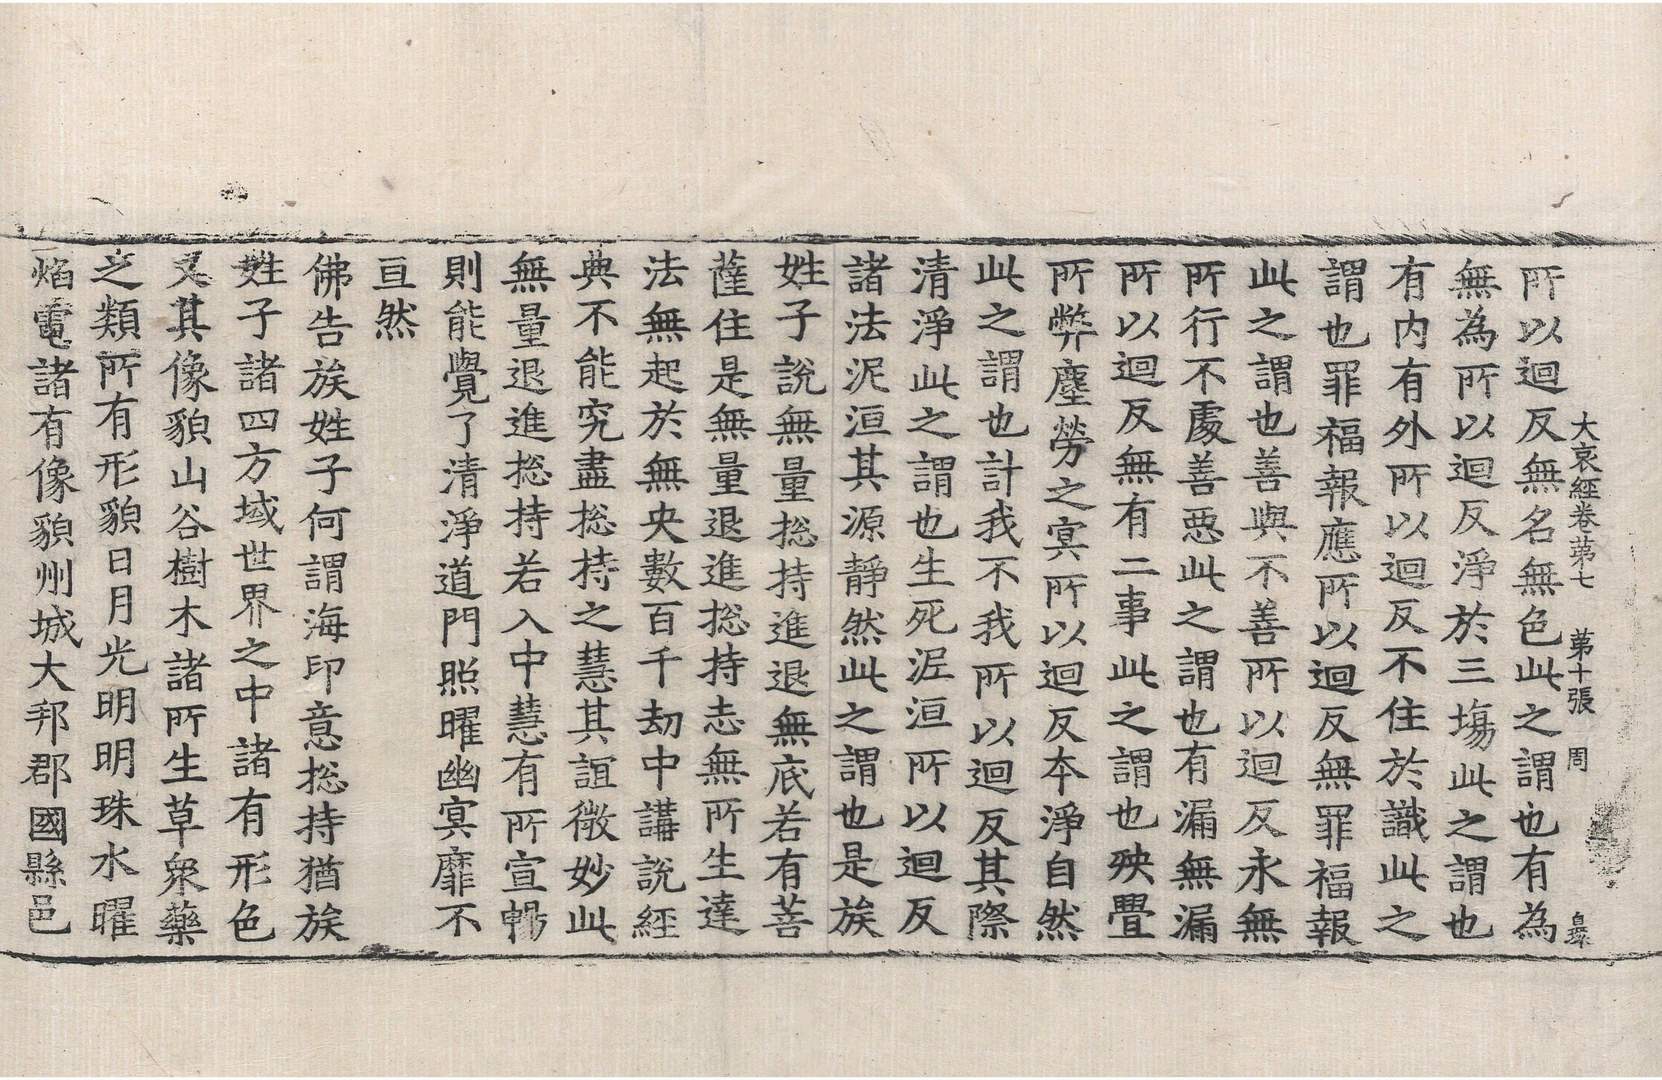 大哀經卷第七 第十張 周
所以迴反無名無色此之謂也有為
無為所以迴反淨於三場此之謂也
有内有外所以迴反不住於識此之
謂也罪福報應所以迴反無罪福報
此之謂也善與不善所以迴反永無
所行不處善惡此之謂也有漏無漏
所以迴反無有二事此之謂也殃疊
所弊塵勞之冥所以迴反本淨自然
此之謂也計我不我所以迴反其際
清淨此之謂也生死泥洹所以迴反
諸法泥洹其源靜然此之謂也是族
姓子說無量捴持進退無底若有菩
薩住是無量退進捴持志無所生達
法無起於無央數百千劫中講説經
典不能究盡捴持之慧其誼微妙此
無量退進捴持若入中慧有所宣暢
則能覺了清淨道門照曜幽冥靡不
亘然
佛告族姓子何謂海印意捴持猶族
姓子諸四方域世界之中諸有形色
又其像貌山谷樹木諸所生草衆藥
之類所有形貌日月光明明珠水曜
焰電諸有像貌州城大邦郡國縣邑